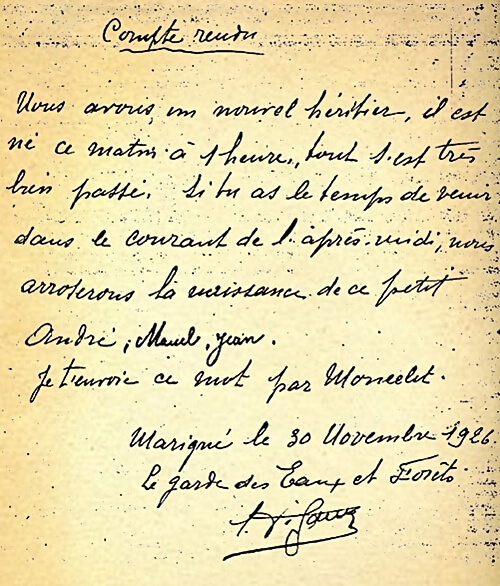 Compte rendu
Nous avons un nouvel héritier, il est
né ce matin à 1 heure, tout s'est très
bien passé. Si tu as le temps de venir
dans le courant de l'après-midi, nous
arroserons la naissance de ce petit
André, Marcel, Jean.
Je t'envoie ce mot par
Marigné le 30 Novembre 1926
Le garde des Eaux et Forêts